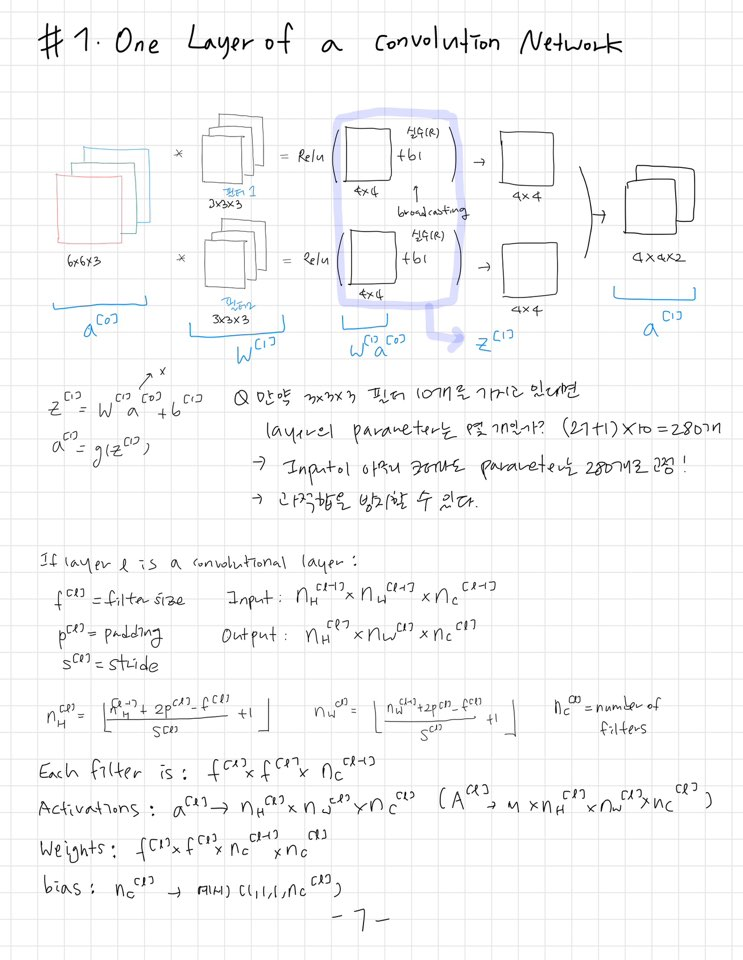 #1. One Layer of a Convolution Network
* = Relu ( 실수(R) + b1 ) →
필터 1
3x3x3
4x4
↑
broadcasting
4x4
6x6x3
* = Relu ( 실수(R) + b1 ) →
필터2
3x3x3
4x4
4x4
4x4x2
a^[0]
W^[1]
W^[1]a^[0]
z^[1]
a^[1]
z^[1] = W^[1]a^[0] + b^[1]
*
a^[1] = g(z^[1])
Q 만약 3x3x3 필터 10개를 가지고 있다면
layer의 parameter는 몇 개인가? (27+1)×10=280개
→ Input이 아무리 크더라도 parameter는 280개로 고정!
→ 과적합을 방지할 수 있다.
If layer l is a convolutional layer:
f^[l] = filter size Input: n_H^[l-1] × n_W^[l-1] × n_C^[l-1]
p^[l] = padding Output: n_H^[l] × n_W^[l] × n_C^[l]
s^[l] = stride
n_H^[l] = ⌊ (n_H^[l-1] + 2p^[l] - f^[l]) / s^[l] + 1 ⌋ n_W^[l] = ⌊ (n_W^[l-1] + 2p^[l] - f^[l]) / s^[l] + 1 ⌋ n_C^[l] = number of
filters
Each filter is: f^[l] × f^[l] × n_C^[l-1]
Activations: a^[l] → n_H^[l] × n_W^[l] × n_C^[l] (A^[l] → m × n_H^[l] × n_W^[l] × n_C^[l])
Weights: f^[l] × f^[l] × n_C^[l-1] × n_C^[l]
bias: n_C^[l] → (1,1,1,n_C^[l])
- 7 -